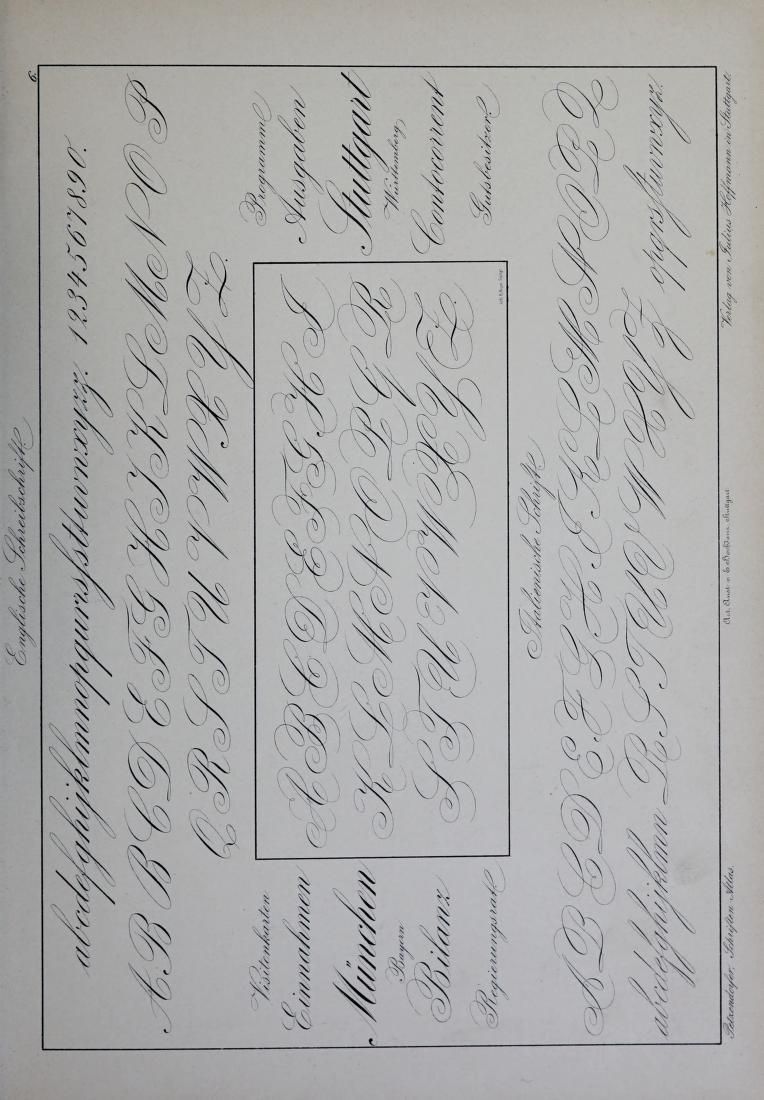 6.
Englische Schreibschrift.
abcdefghijklmnopqurrsßsttuvwxyzz. 1234567890.
A B C D E F G H I K L M N O P
Q R S T U V W X Y Z.
Visitenkarten
Einnahmen
München
Bayern
Bilanz
Regierungsrat
A B C D E F G H I
K L M N O P G R
S T U V W X Y Z.
Programme
Ausgaben
Stuttgart
Württemberg
Contocorrent
Gutsbesitzer.
Italienische Schrift.
A B C D E F G H I K L M N O P Q
R S T U V W X Y Z
abcdefghijklmn opqrsßtuvwxyz.
Petzendorfer, Schriften-Atlas.
Verlag von Julius Hoffmann in Stuttgart.